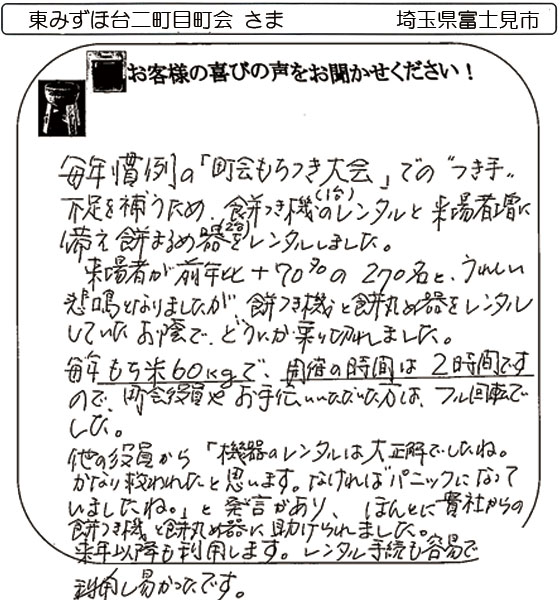 東みずほ台二町目町会 さま　埼玉県富士見市
お客様の喜びの声をお聞かせください！
毎年慣例の「町会もちつき大会」での"つき手"
不足を補うため、餅つき機(1台)のレンタルと来場者増に
備え餅まるめ器(2台)をレンタルしました。
来場者が前年比+70%の270名と、うれしい
悲鳴となりましたが、餅つき機と餅丸め器をレンタル
していたお陰で、どうにか乗り切れました。
毎年もち米60kgで、開催の時間は2時間です
ので、町会役員やお手伝いいただいた方は、フル回転で
した。
他の役員から「機器のレンタルは大正解でしたね。
かなり救われたと思います。なければパニックになって
いましたね。」と発言があり、ほんとに貴社からの
餅つき機と餅丸め器に助けられました。
来年以降も利用します。レンタル手続も容易で
利用し易かったです。